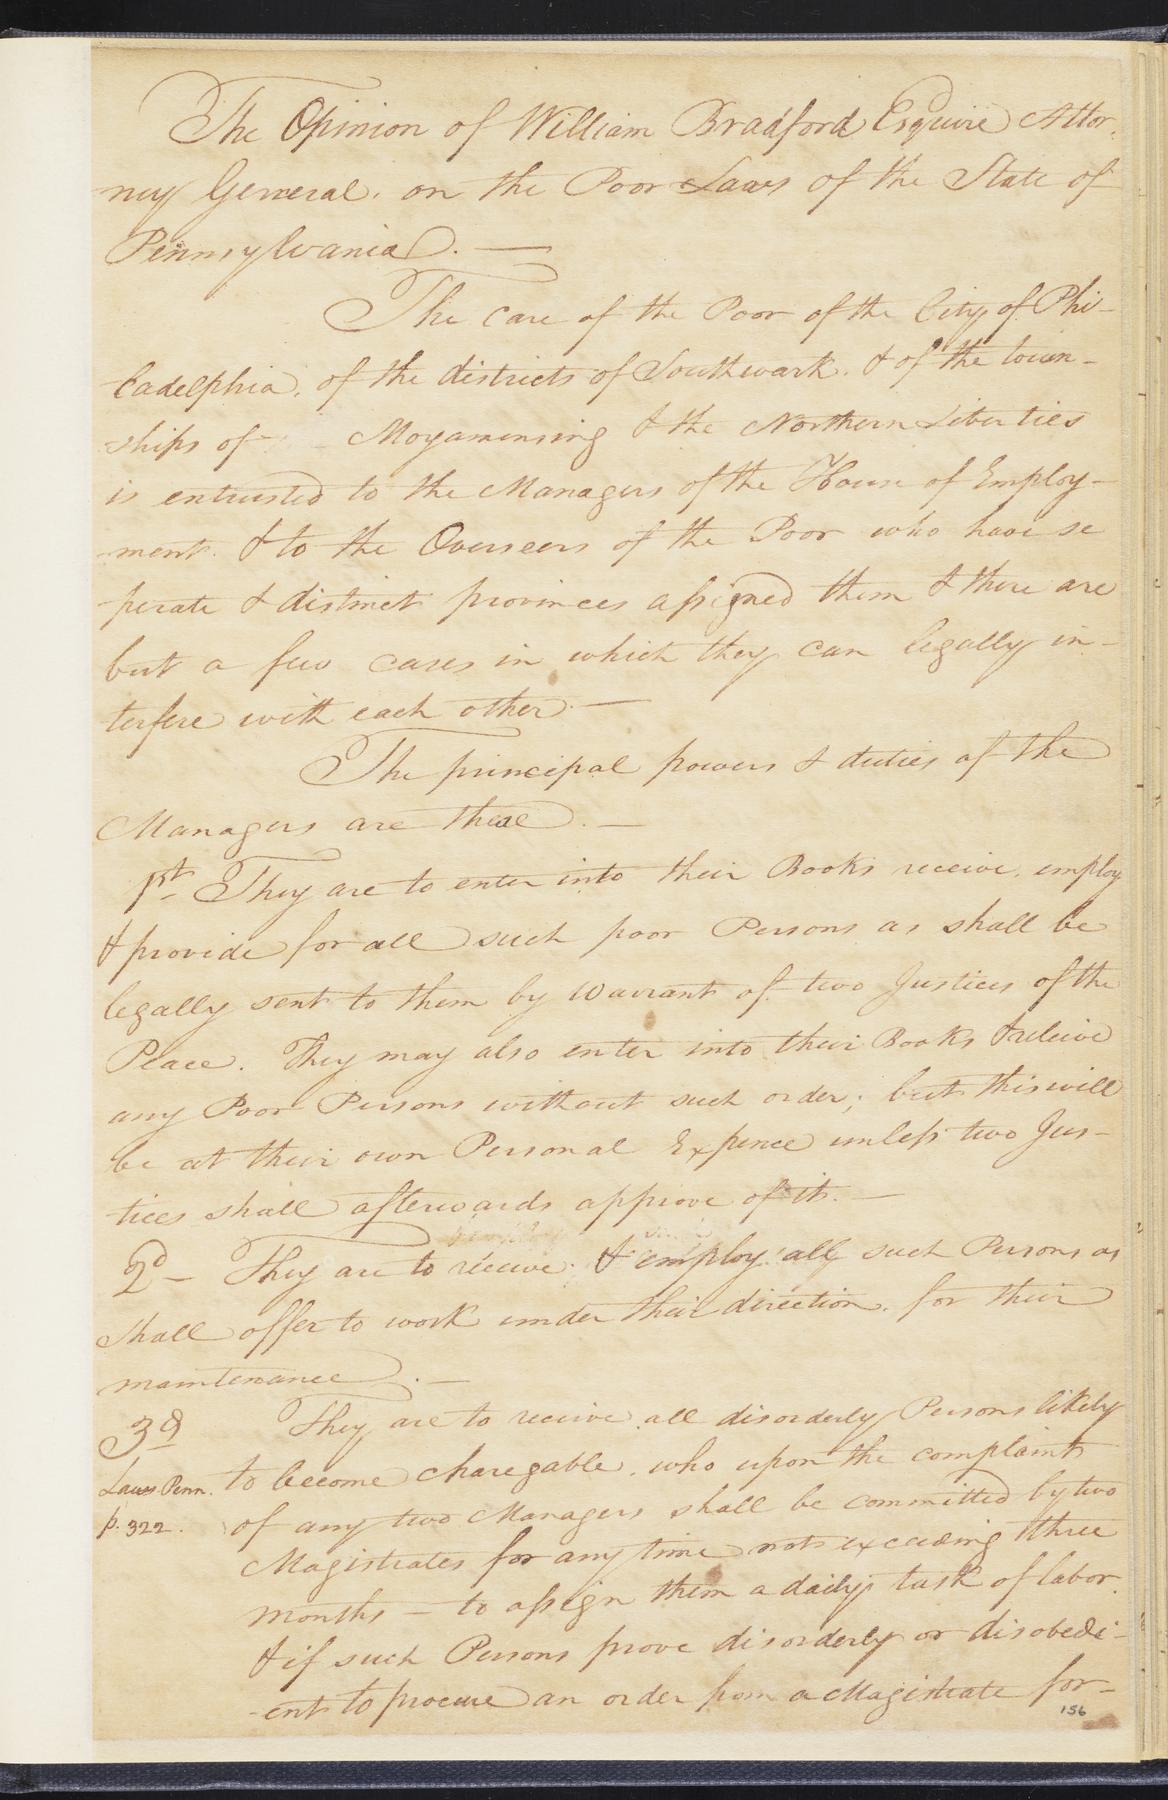 The Opinion of William Bradford Esquire Attor-
ney General. on the Poor Laws of the State of
Pennsylvania. —
The care of the Poor of the City of Phi-
ladelphia, of the districts of Southwark. & of the town-
-ships of Moyamensing & the Northern Liberties
is entrusted to the Managers of the House of Employ-
-ment. & to the Overseers of the Poor who have se
perate & distinct provinces assigned them & there are
but a few cases in which they can legally in-
terfere with each other. —
The principal powers & duties of the
Managers are these. —
1st They are to enter into their Books receive. employ
& provide for all such poor Persons as shall be
legally sent to them by Warrant of two Justices of the
Peace. They may also enter into their Books & receive
any Poor Persons without such order; but this will
be at their own Personal Expence unless two Jus-
tices shall afterwards approve of it. —
2d — They are to receive & employ all such Persons as
shall offer to work under their direction. for their
maintenance. —
3d They are to receive all disorderly Persons likely
Laws Penn. to become charegable. who upon the complaint
p. 322. of any two Managers shall be committed by two
Magistrates for any time not exceeding three
months — to assign them a daily task of labor.
& if such Persons prove disorderly or disobedi-
-ent to procure an order from a Magistrate for-
156